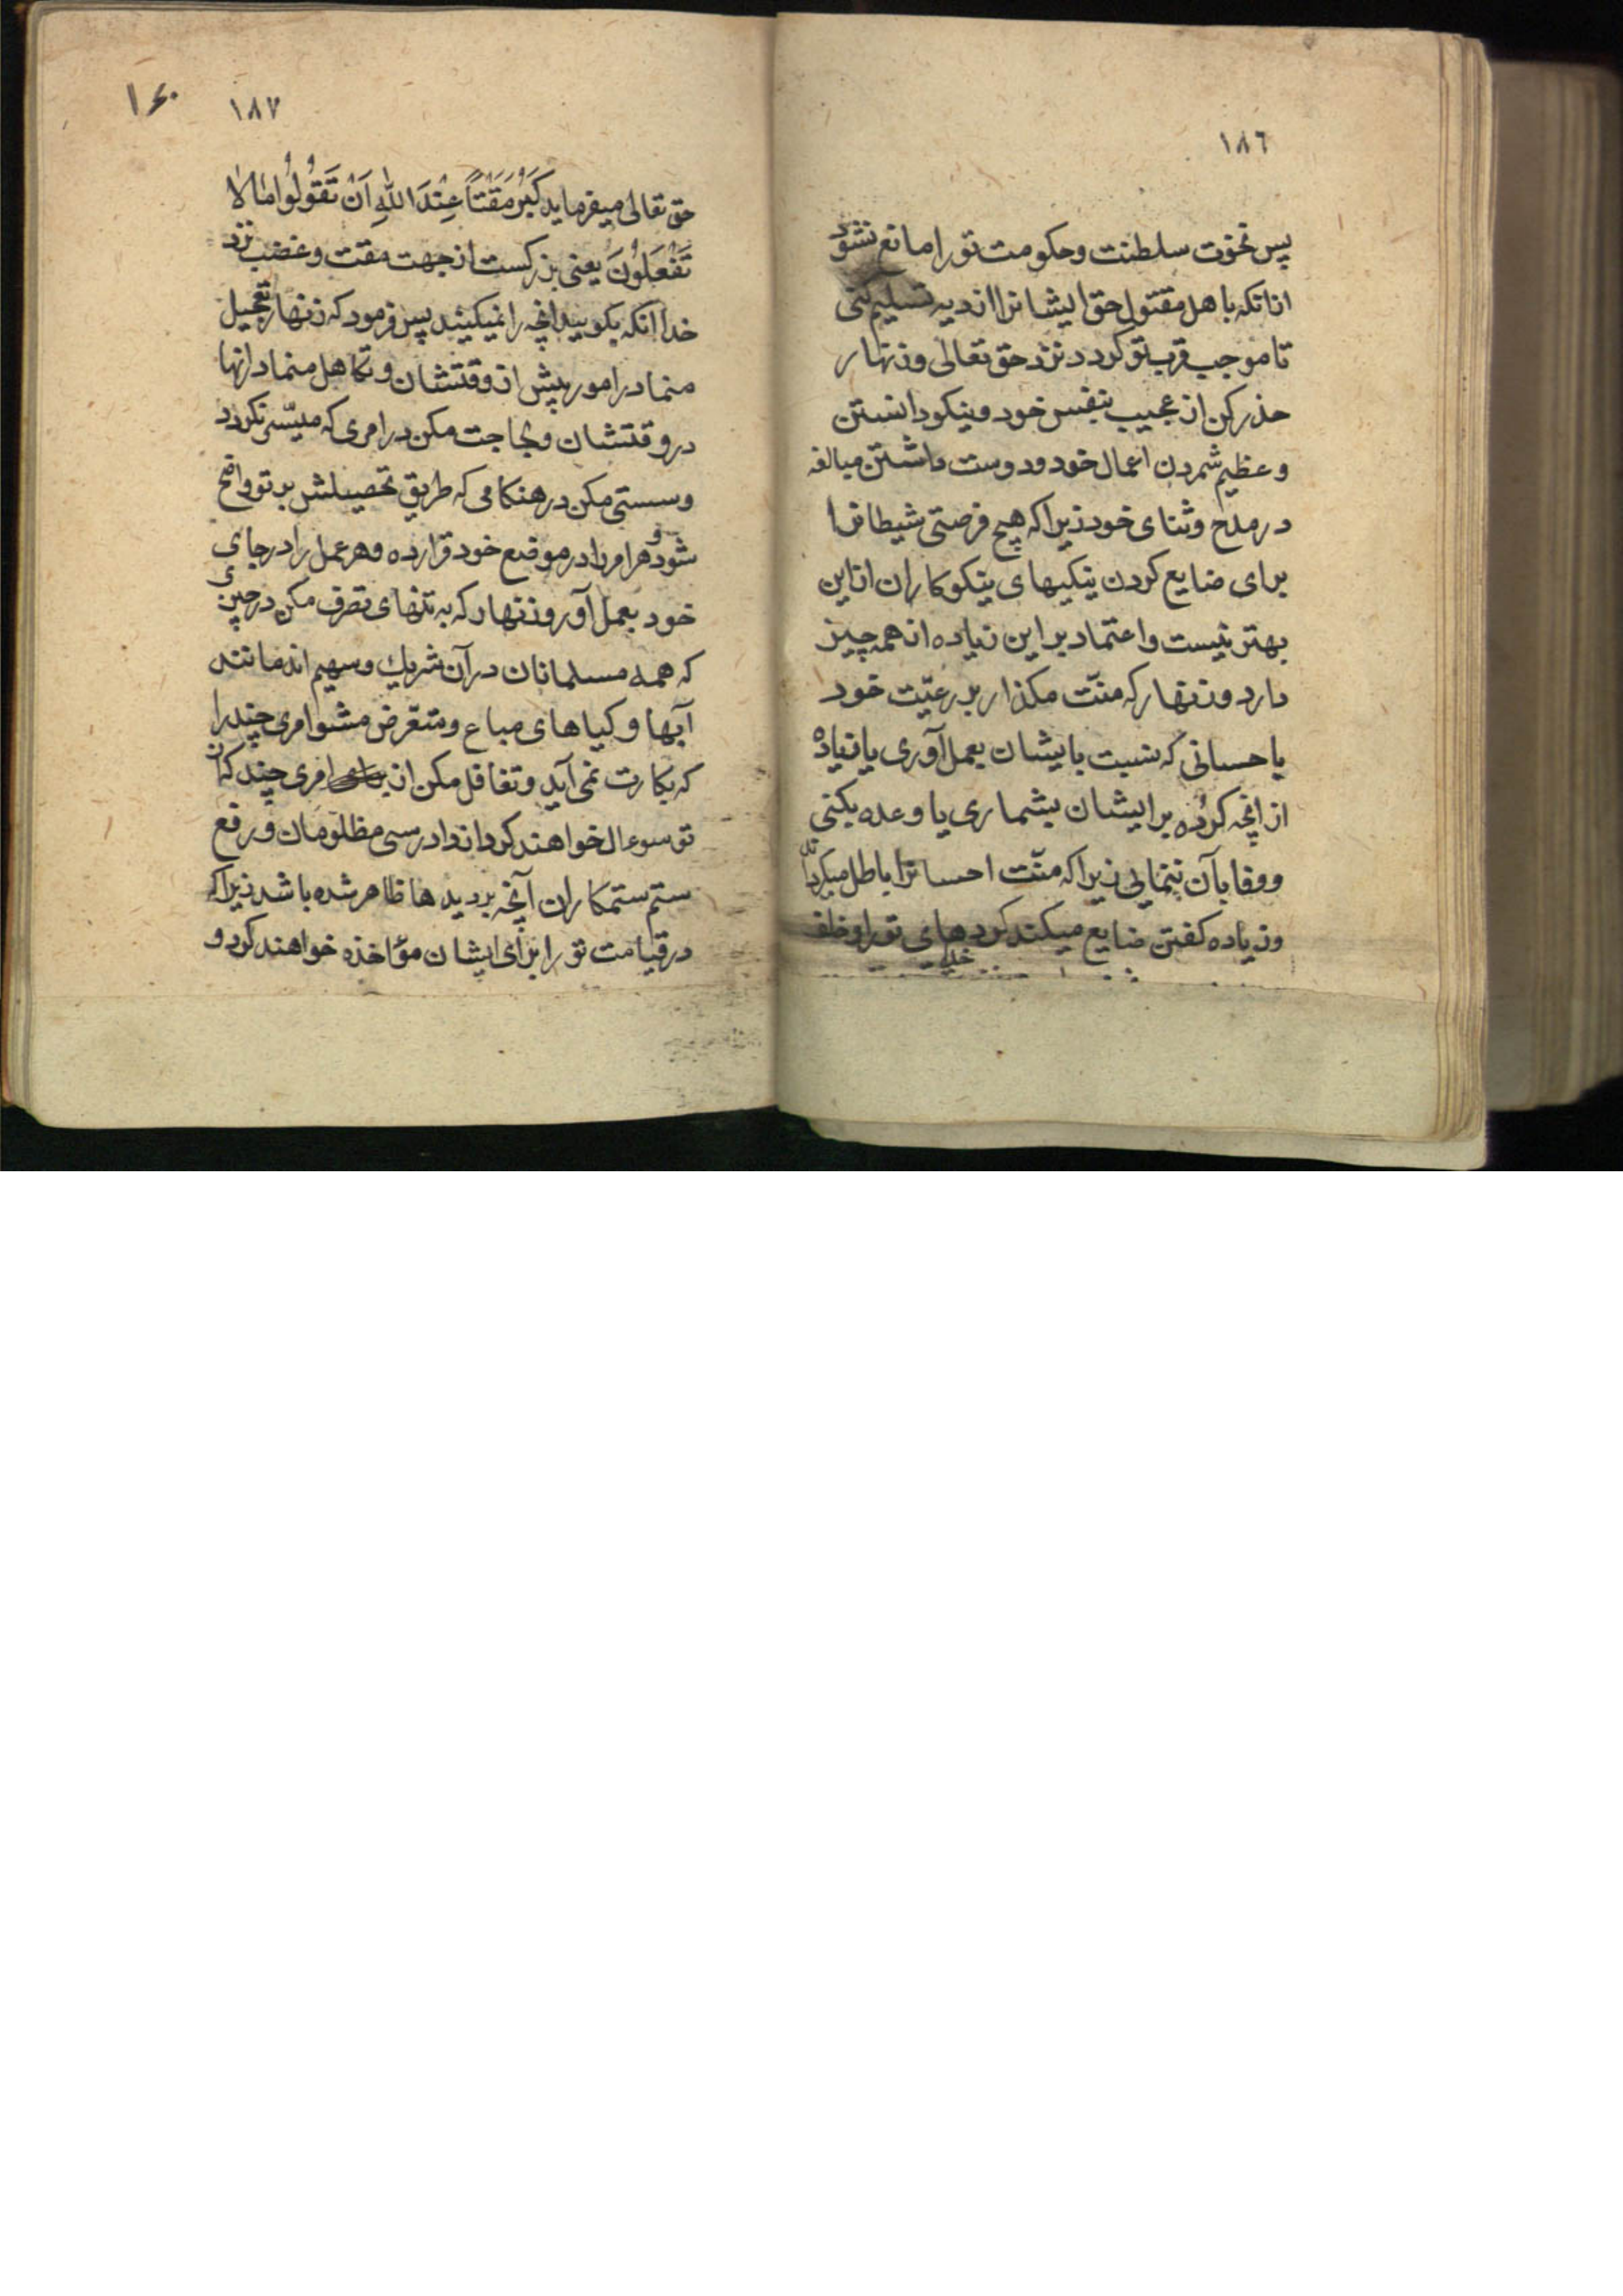 ١٨٦
پس نخوت سلطنت و حکومت تو را مانع نشود
از انکه باهل مقتول حق ایشانرا از دیه تسلیم کنی
تا موجب قرب تو کردد نزد حق تعالی و زنهار
حذر کن از عجیب بنفس خود و نیکو دانستن
و عظیم شمردن اعمال خود و دوست داشتن مبالغه
در مدح و ثنای خود زیرا که هیچ فرصتی شیطانرا
برای ضایع کردن نیکیهای نیکوکاران از این
بهتر نیست و اعتماد بر این زیاده از همه چیز
دارد و زنهار که منّت مکذار بر رعیّت خود
باحسانی که نسبت بایشان بعمل آوری یا زیاده
از انچه کرده بر ایشان بشماری یا وعده بکنی
و وفا بآن ننمایی زیرا که منّت احسانرا باطل میکرداند
و زیاده کفتن ضایع میکند کردهای تو را و خلف
١٨٧
١۶٠
حق تعالی میفرماید کَبُرَ مَقْتاً عِنْدَ اللهِ اَنْ تَقُولُوا مٰا لٰا
تَفْعَلُونَ یعنی بزرکست از جهت مقت و غضب نزد
خدا انکه بکویید انچه را نمیکنید پس فرمود که زنهار تعجیل
منما در امور پیش از وقتشان و تکاهل منما در انها
در وقتشان و لجاجت مکن در امری که میسّر نکردد
و سستی مکن در هنکامی که طریق تحصیلش بر تو واضح
شود و هر امر را در موضع خود قرار ده و هر عمل را در جای
خود بعمل آور و زنهار که به تنهای تصرف مکن در چیزی
که همه مسلمانان در آن شریک و سهیم اند مانند
آبها و کیاهای مباع و متعّرض مشو امری چند را
که بکارت نمی آید و تغافل مکن از امری چند که از
تو سوءال خواهند کرد از دادرسی مظلومان و رفع
ستم ستمکاران آنچه بر دیدها ظاهر شده باشد زیرا که
در قیامت تو را برای ایشان مؤاخذه خواهند کرد و